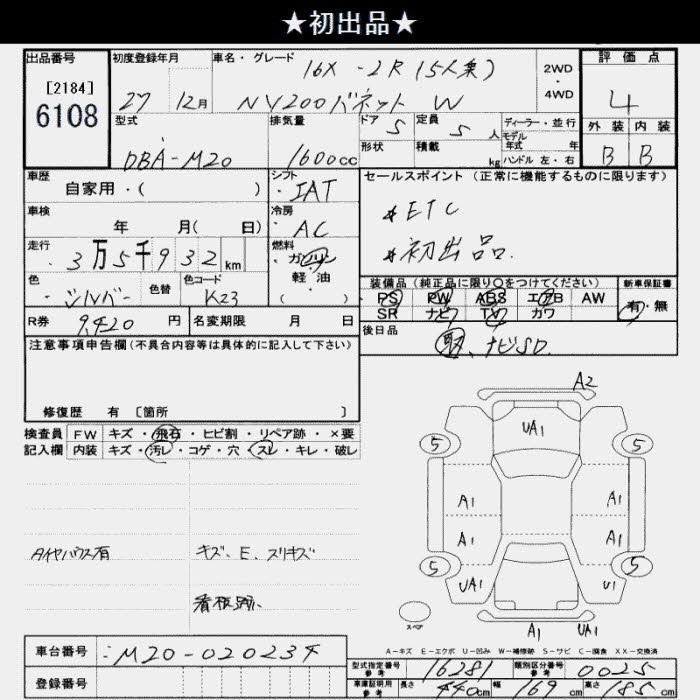 ★初出品★
出品番号 初度登録年月 車名・グレード 16X -2R (5人乗) 2WD・4WD 評価点
[2184]
6108 27 12月 NV200バネット W 4
型式 排気量 ドア 5 定員 5 人 ディーラー・並行 外装 内装
DBA-M20 1600cc 形状 積載 kg モデル年式 年 ハンドル 左・右 B B
車歴 自家用・( ) シフト IAT セールスポイント (正常に機能するものに限ります)
車検 年 月( 日) 冷房 AC *ETC
走行 3万5千932km 燃料 ガソリン 軽油 ( ) *初出品.
色 シルバー 色替 色コード K23 装備品 (純正品に限り○をつけてください) 新車保証書
PS PW ABS エアB AW 有・無
R券 9,420 円 名変期限 月 日 SR ナビ TV カワ
注意事項申告欄 (不具合内容等は具体的に記入して下さい) 後日品 ナビSD.
修復歴 有 [箇所 ]
A2
UA1
検査員 FW キズ・飛石・ヒビ割・リペア跡・×要
記入欄 内装 キズ・汚レ・コゲ・穴・スレ・キレ・破レ
5 5
A1 A1
A1 A1
タイヤハウス有 キズ、E、スリキズ
5 5
UA1 U1
看板跡、
スペア
A1 UA1
A-キズ E-エクボ U-凹み W-補修跡 S-サビ C-腐食 XX-交換済
車台番号 M20-020234
型式指定番号 参考 16281 類別区分番号 参考 0025
登録番号 車庫証明用 参考 長さ 440cm 幅 169cm 高さ 185cm